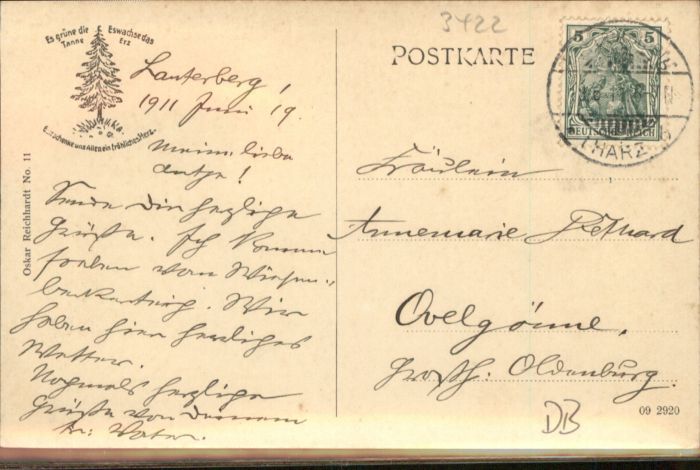 3422
Es grüne die Tanne
Es wachse das Erz
Gott schenke uns Allen ein fröhliches Herz
POSTKARTE
5 5
DEUTSCHES REICH
(HARZ)
Lauterberg,
1911 Juni 19.
Meine liebe
Antje!
Sende Dir herzliche
Grüße. Ich komme
soeben vom Wiesen-
beckerteich. Wir
haben hier herrliches
Wetter.
Nochmals herzliche
Grüße von Deinem
l: Vater.
Fräulein
Annemarie
Ovelgönne.
Großh: Oldenburg.
Oskar Reichhardt No. 11
09 2920
DB